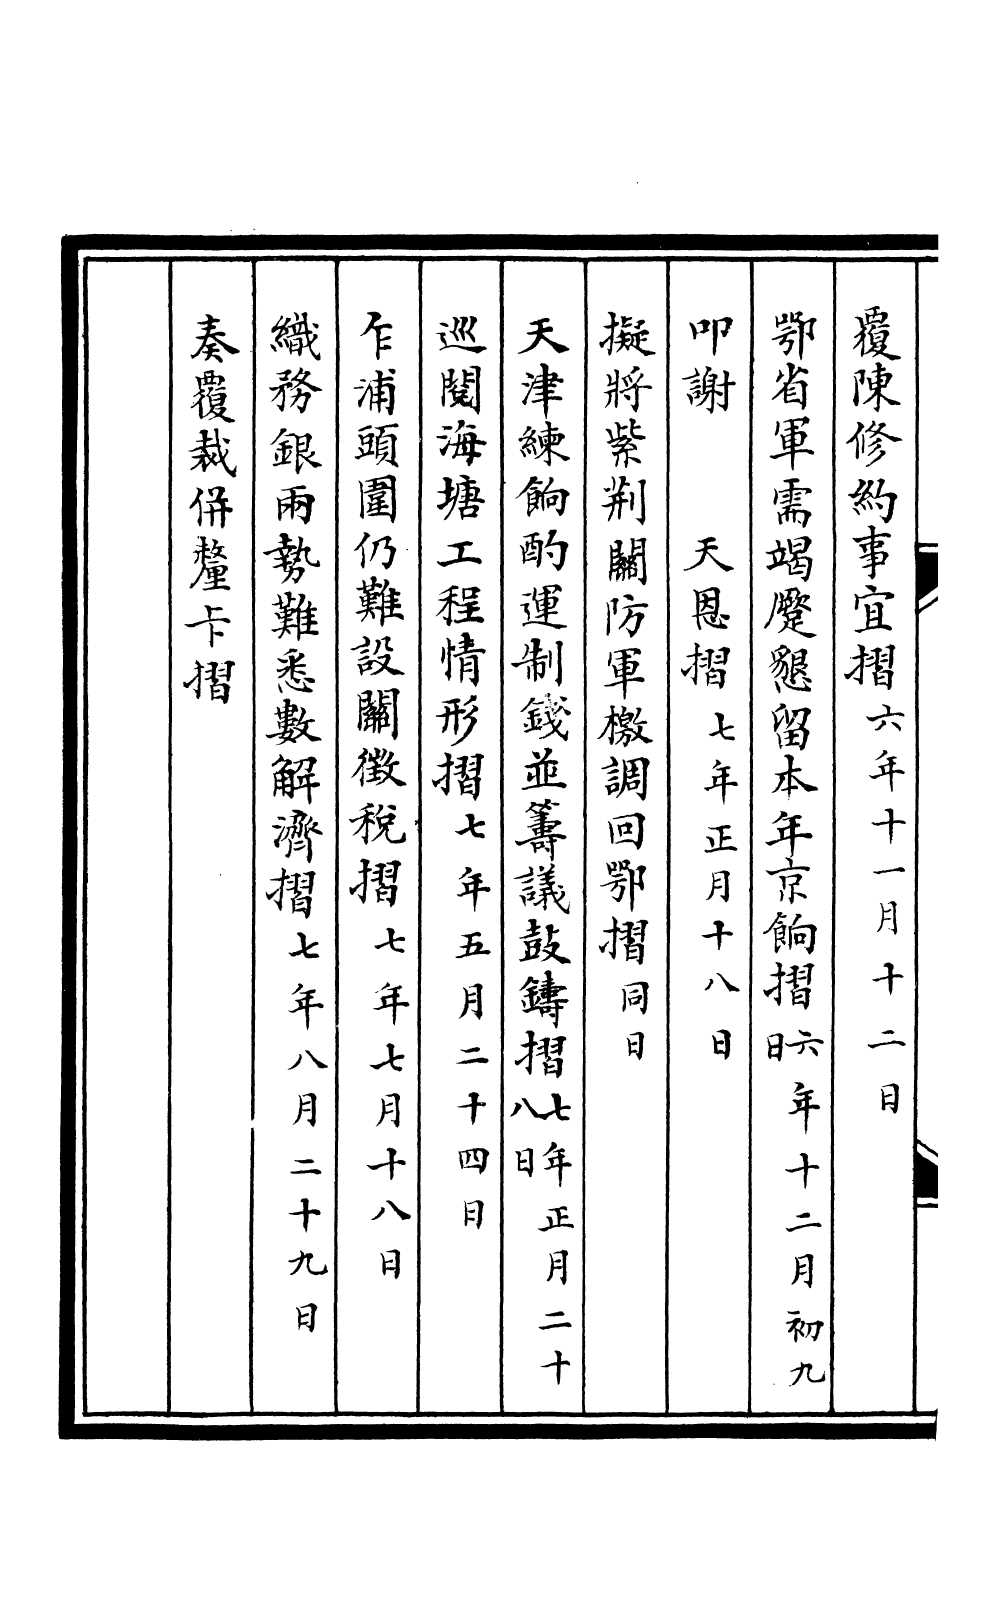 覆陳修約事宜摺六年十一月十二日
鄂省軍需竭蹷懇留本年京餉摺六年十二月初九日
叩謝　天恩摺七年正月十八日
擬將紫荆關防軍檄調回鄂摺同日
天津練餉酌運制錢並籌議鼓鑄摺七年正月二十八日
巡閱海塘工程情形摺七年五月二十四日
乍浦頭圍仍難設關徵稅摺七年七月十八日
織務銀兩勢難悉數解濟摺七年八月二十九日
奏覆裁併釐卡摺